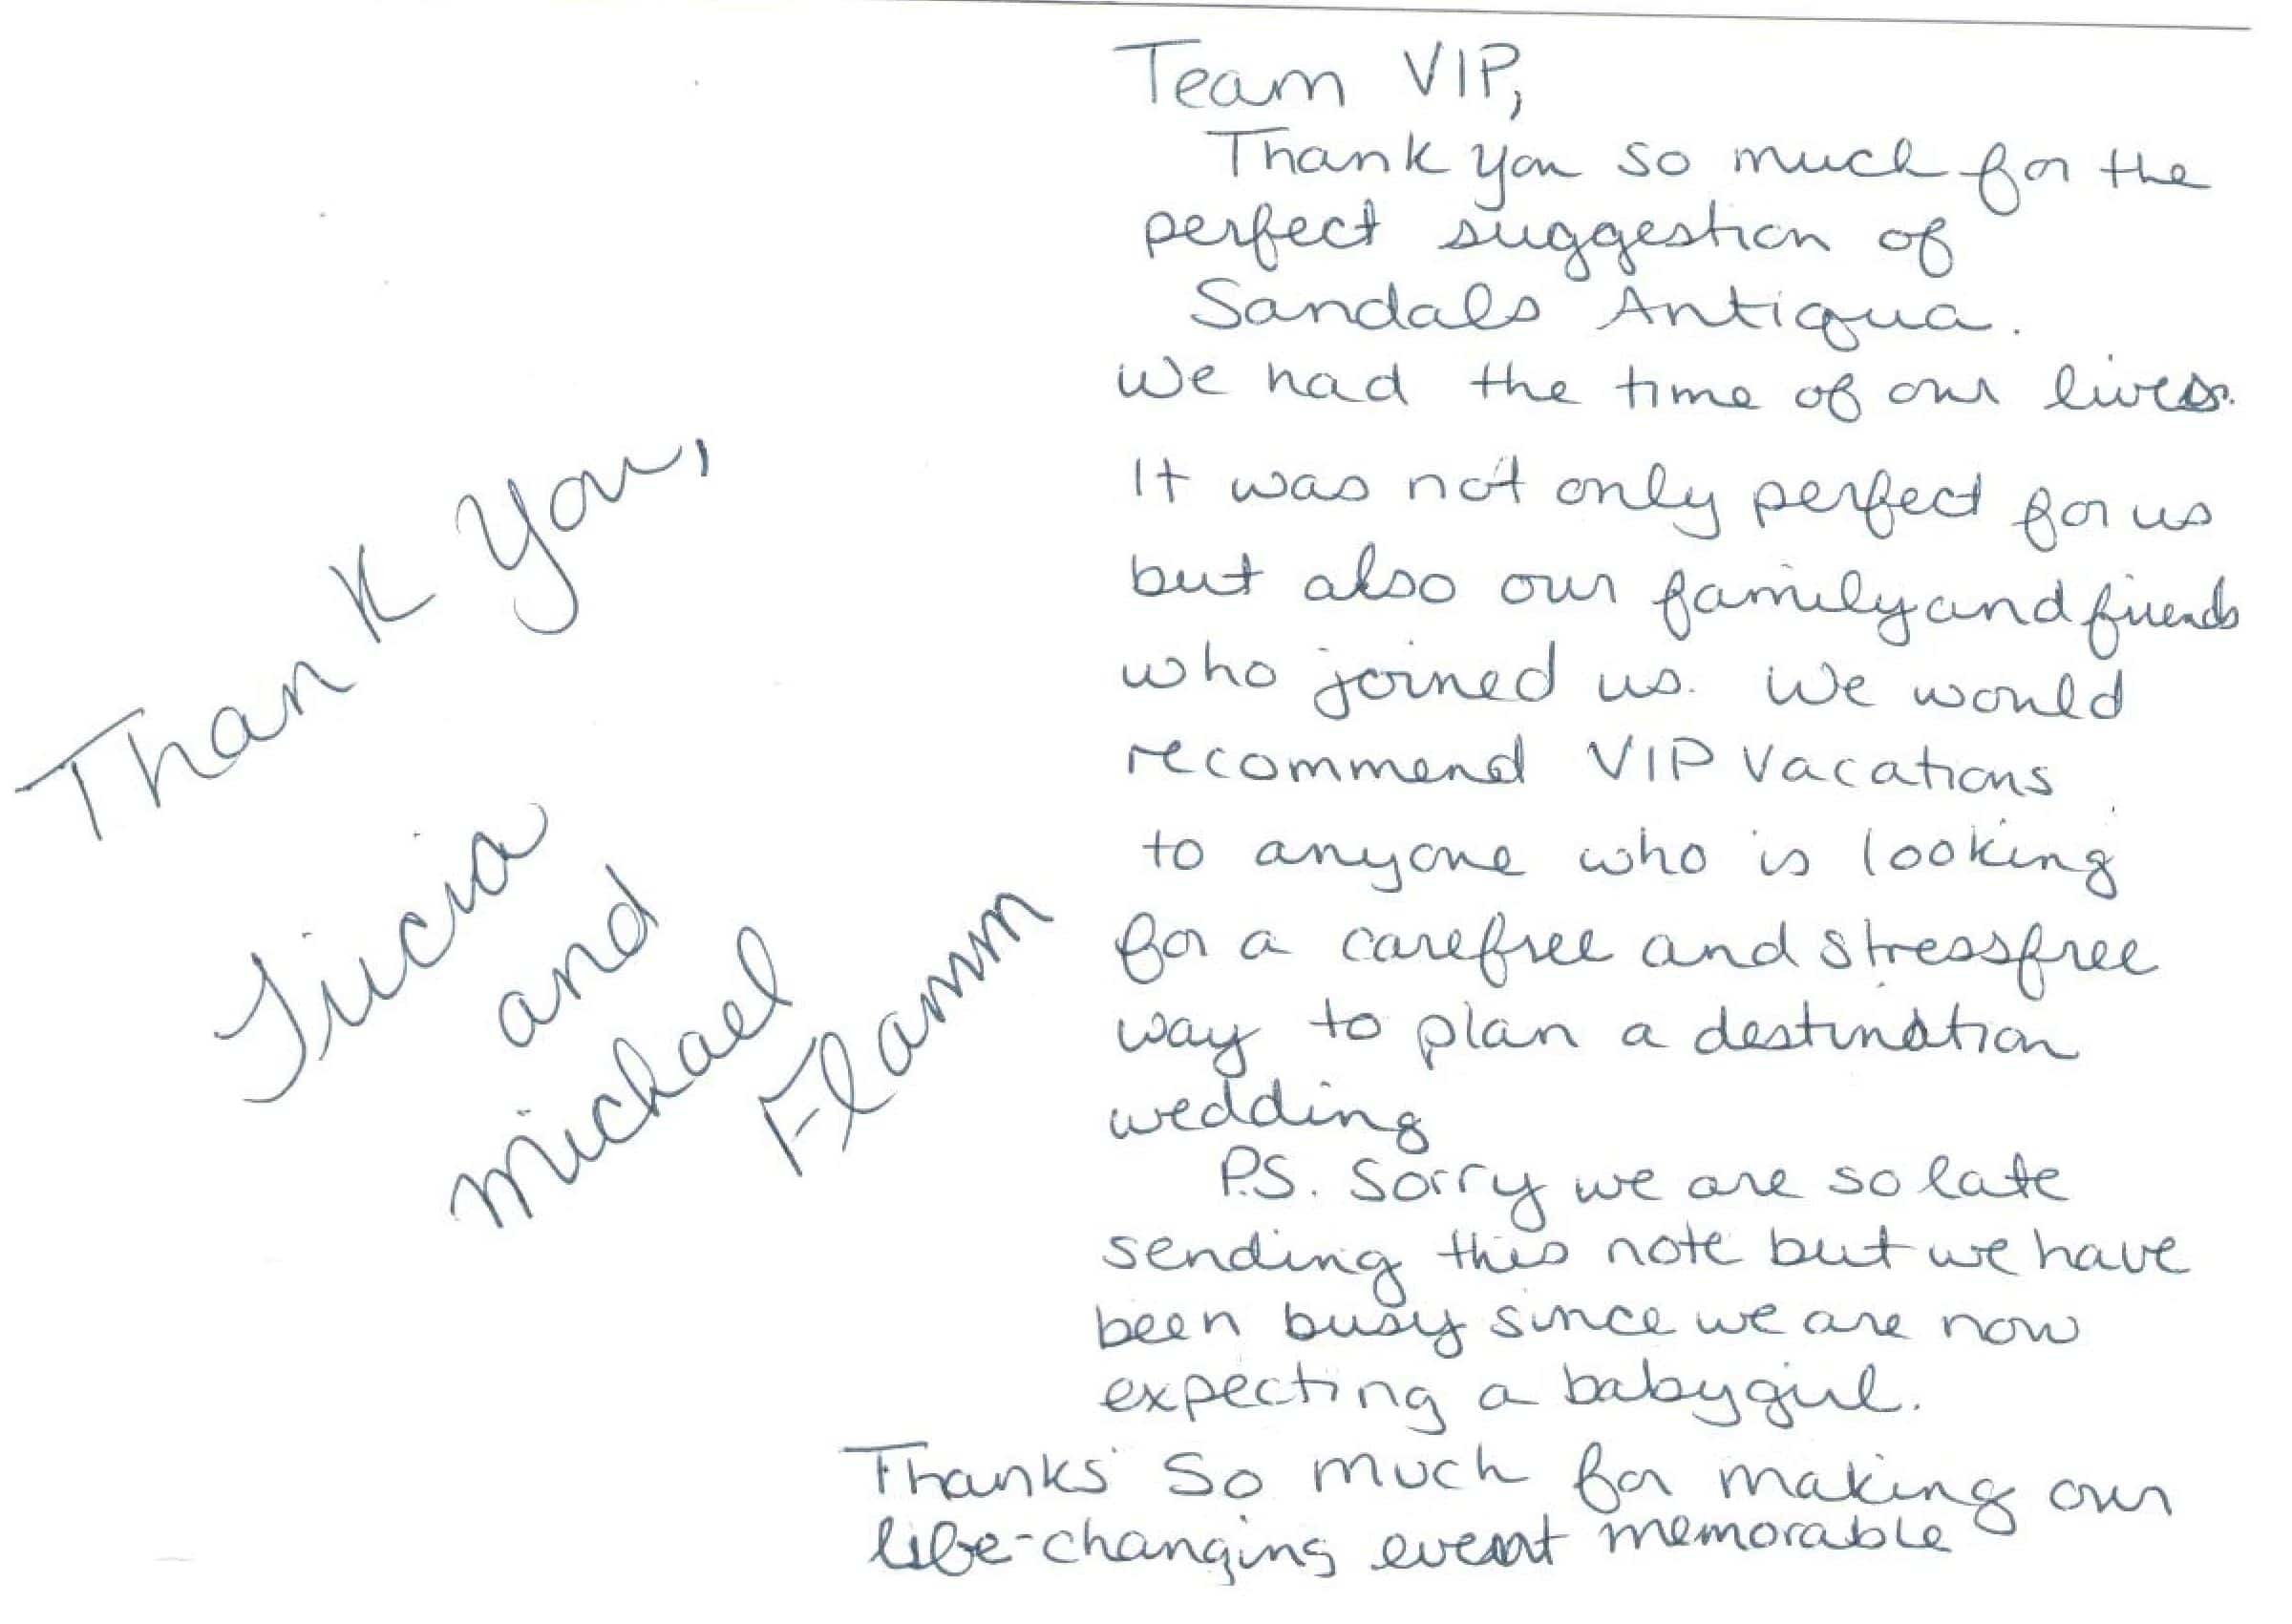 Team VIP,
Thank you so much for the
perfect suggestion of
Sandals Antigua.
We had the time of our lives.
It was not only perfect for us
but also our family and friends
who joined us. We would
recommend VIP Vacations
to anyone who is looking
for a carefree and stressfree
way to plan a destination
wedding
P.S. Sorry we are so late
sending this note but we have
been busy since we are now
expecting a baby girl.
Thanks so much for making our
life-changing event memorable
Thank You,
Tricia
and
Michael
Flamm